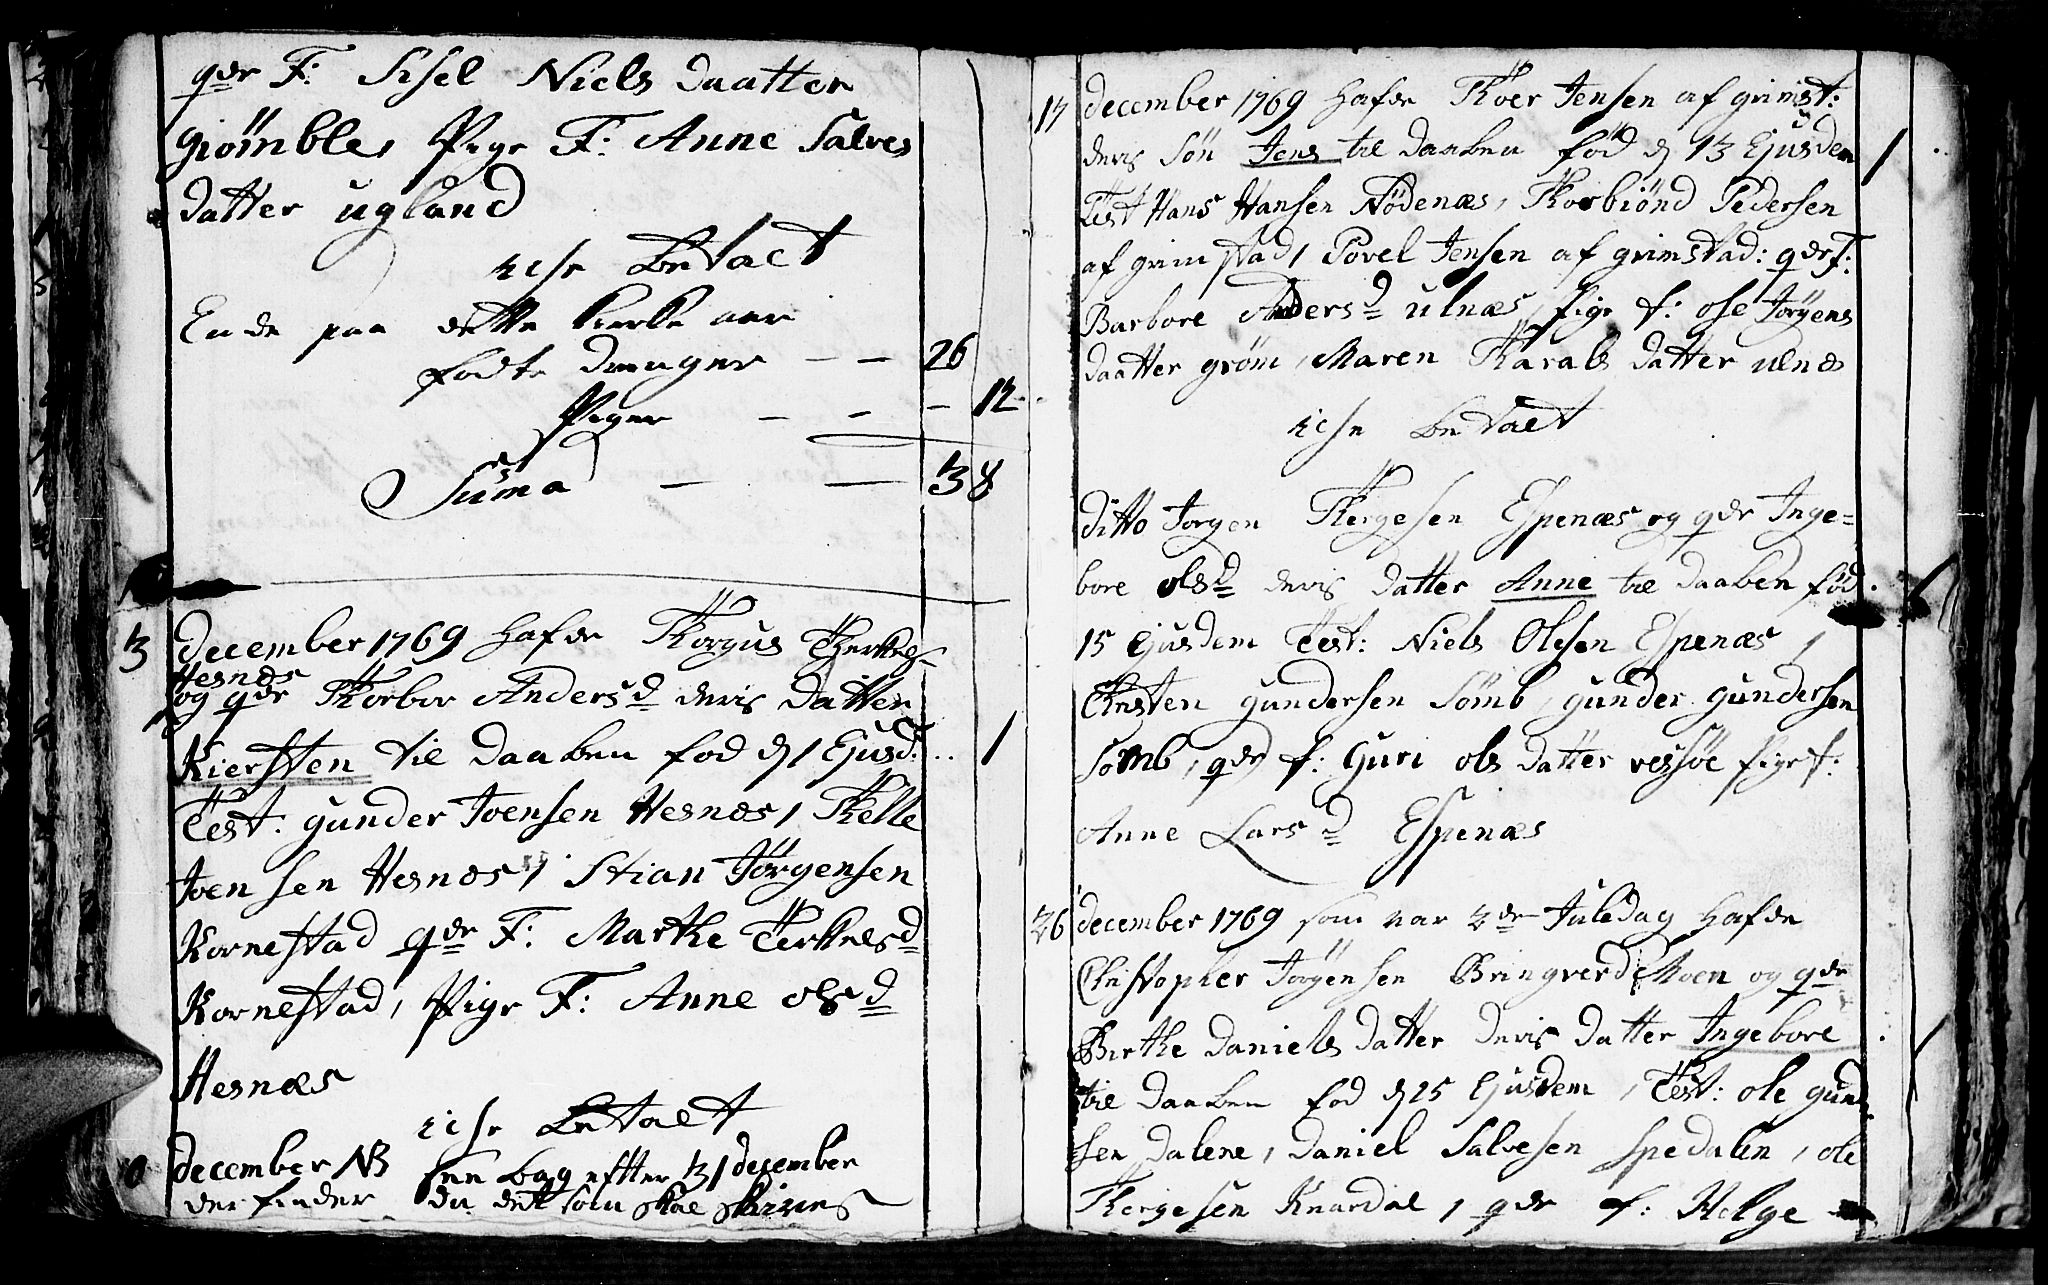 qde F: Sisel Niels daatter
giömble, Pige F: Anne Salves
datter ugland
Betalt
Ende paa dette kierke aar
fødte drenger — — 26
Piger — — — 12
Suma — — 38
3 december 1769 hafde Torgus Therkels
Hesnes
og qde Torbor Andersd deris datter
Kiersten til daaben fød d 1 Ejusd: 1
Test. gunder Joensen Hesnæs, Kelle
Joensen Hesnæs, Stian Jörgensen
Kornestad qde F: Marthe Terkelsd
Kornestad, Pige F: Anne olsd
Hesnæs
Betalt
december NB see bag efter 31 december
der finder du det som skal skrives
17 december 1769 hafde Thoer Jensen af grimst:
deris Sön Jens til daaben fød d 13 Ejusdem 1
Test Hans Hansen Nödenæs, Thorbiönd Pedersen
af grimstad, Povel Jensen af grimstad: qde F:
Barbore Andersd ulnæs, Pige f: ose Jörgens
daatter gröm, Maren Taralds datter ulnæs
Betalt
ditto Jorgen Tergesen Espenæs og qde Inge=
bore olsd deris datter Anne til daaben fød
15 Ejusdem Test: Niels Olesen Espenæs,
Christen gundersen Sömb, gunder gundersen
Somb, qde f: Guri ols datter ressöe pige f:
Anne Larsd Espenæs
26 december 1769 som var 2de Juledag hafde
Christopher Jörgensen Bringverd Moen og qde
Birthe Daniels datter deris datter Ingebore
til daaben fød d 25 Ejusdem, Test: ole gund
sen dalene, Daniel Salvesen Spedalen, ole
Tergesen Knardal, qde f: Helge